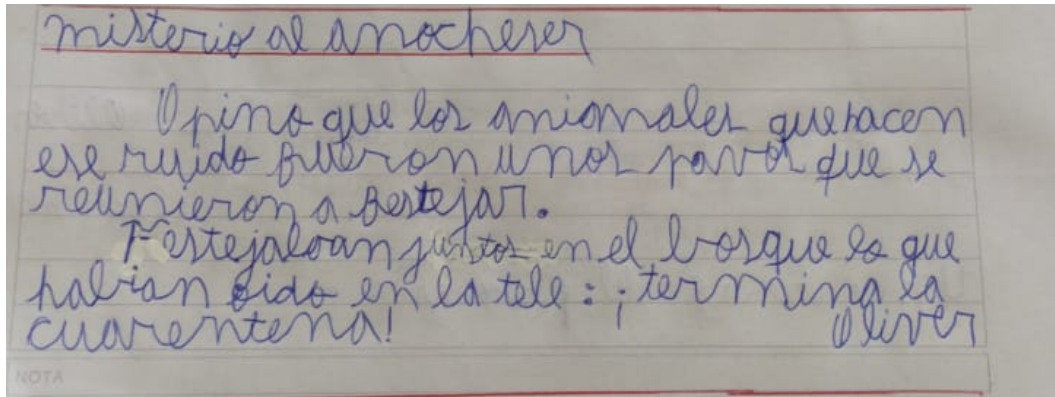 misterio al anocheser
Opino que los aniomales que hacen
ese ruido fueron unos pavos que se
reunieron a festejar.
Festejaban juntos en el bosque lo que
habian oido en la tele: ¡termina la
cuarentena! Oliver
NOTA